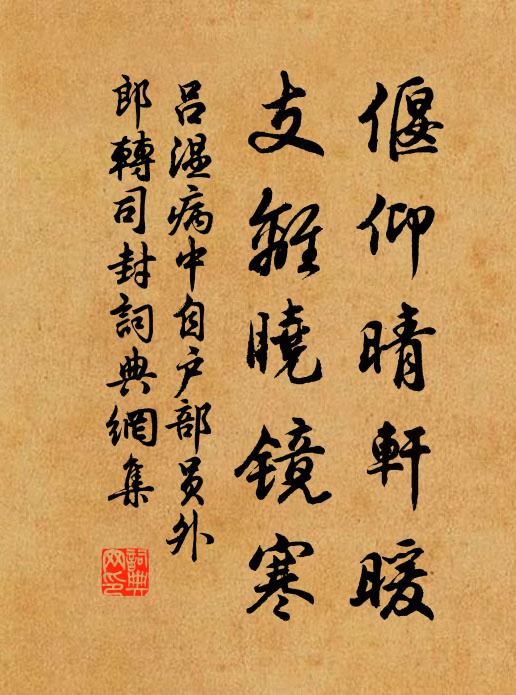 偃仰晴軒暖
支離曉鏡寒
呂溫病中自户部員外
郎轉司封詞典網集
詞典網印